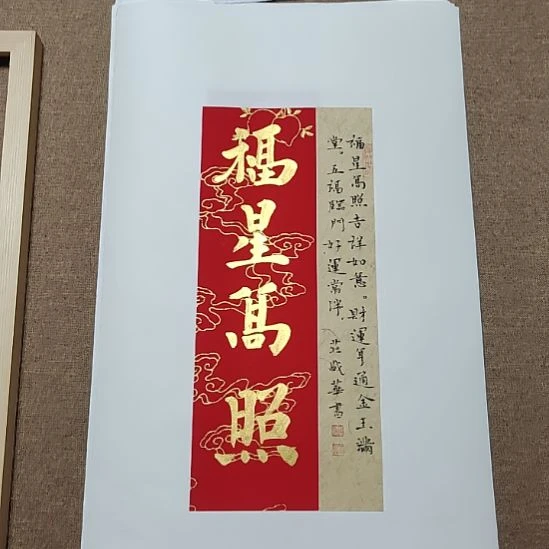 福星髙照
福星髙照吉祥如意。財運亨通金玉滿
堂。五福臨門好運常伴。莊
華書